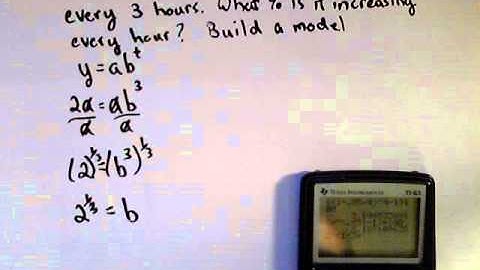 every 3 hours. What % is it increasing
every hour? Build a model
y = ab^t
2a/a = ab^3/a
(2)^1/3 = (b^3)^1/3
2^1/3 = b
TEXAS INSTRUMENTS